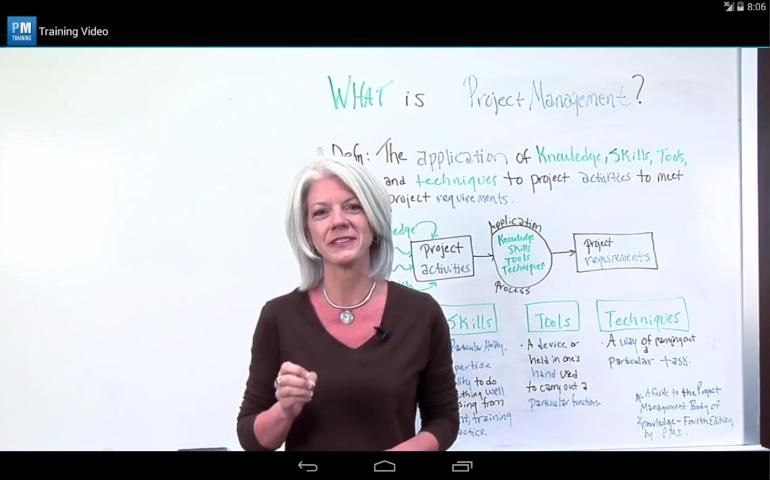 8:06
PM
TRAINING
Training Video
WHAT is Project Management?
* Defn: The application of Knowledge, Skills, Tools,
and techniques to project activities to meet
project requirements.
Application
Project
activities
Knowledge
Skills
Tools
Techniques
Process
project
requirements
Skills
Tools
Techniques
Particular Ability.
to do
well
from
training
• A device or
held in one's
hand used
to carry out a
particular function.
• A way of carrying out
a
particular task.
* A Guide to the Project
Management Body of
Knowledge - Fourth Edition
by P.M.I.